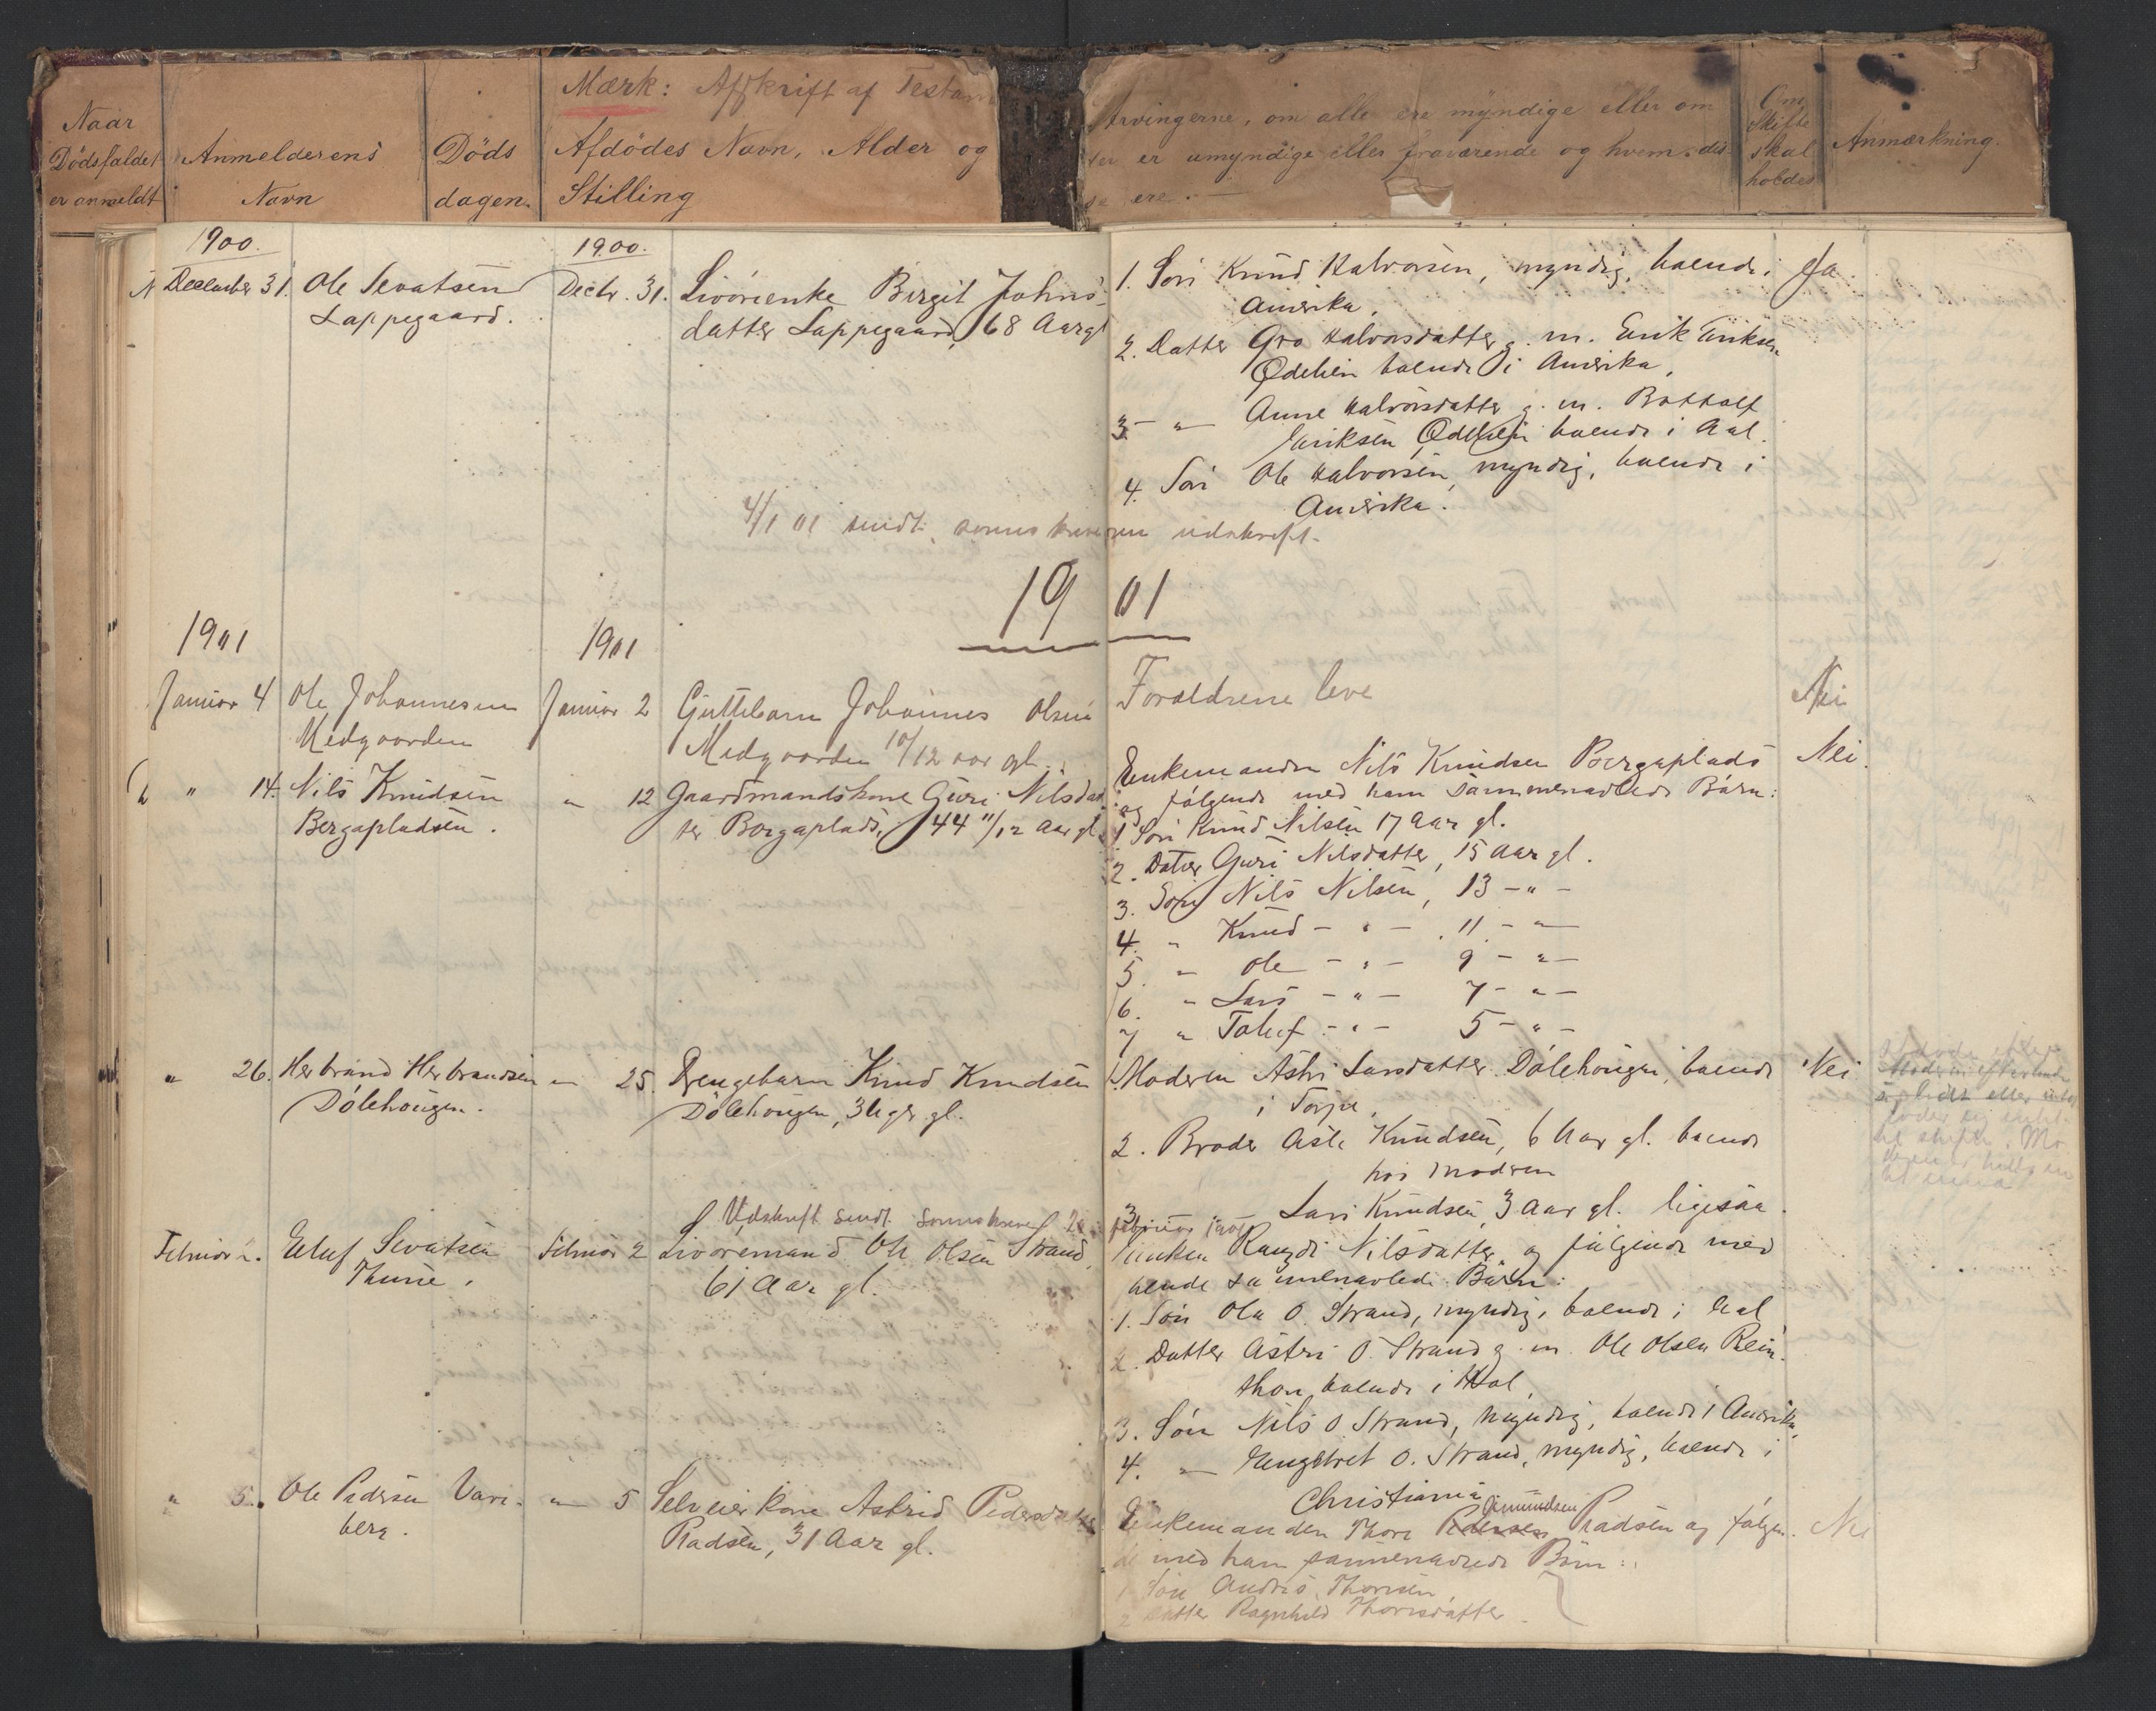 Mærk: Afskrift af Testam
Naar
Dödsfaldet
er anmeldt
Anmelderens
Navn
Döds
dagen.
Afdödes Navn, Alder og
Stilling
Arvingerne, om alle ere myndige eller om
er umyndige eller fraværende og hvem dis-
se ere.
Om
Skifte
skal
holdes
Anmærkning.
1900.
December 31.
Ole Sevatsen
Lappegaard.
1900.
Decbr. 31.
Livörenke Birgit Johns-
datter Lappegaard, 68 Aar gl
1. Sön Knud Halvorsen, myndig, boende i
Amerika.
2. Datter Gro Halvorsdatter g. m. Erik Eriksen
Ødelien boende i Amerika.
3. " Anne Halvorsdatter g. m. Bottolf
Eriksen Ødelien boende i Aal.
4. Sön Ole Halvorsen, myndig, boende i
Amerika.
Ja.
4/1 01 sendt sorenskriveren udskrift.
1901
1901
Januar 4
Ole Johannesen
Medgaarden
1901
Januar 2
Guttebarn Johannes Olsen
Medgaarden 10/12 aar gl.
Forældrene leve
Nei
" 14.
Nils Knudsen
Bergapladsen.
" 12
Gaardmandskone Guri Nilsdat
ter Borgaplads, 44 11/12 Aar gl.
Enkemanden Nils Knudsen Borgaplads
og fölgende med ham sammenavlede Börn:
1 Sön Knud Nilsen 17 Aar gl.
2. Datter Guri Nilsdatter, 15 Aar gl.
3. Sön Nils Nilsen, 13 - " -
4. " Knud - " - 11 - " -
5 " Ole - " - 9 - " -
6. " Lars - " - 7 - " -
7 " Toluf - " - 5 - " -
Nei.
" 26.
Herbrand Herbrandsen
Dölehougen.
" 25.
Drengebarn Knud Knudsen
Dölehougen, 3 Uger gl.
1. Moderen Astri Larsdatter Dölehougen, boende
i Torpe.
2. Broder Asle Knudsen, 6 Aar gl. boende
hos Modren
3 " Lars Knudsen, 3 Aar gl. ligesaa.
Nei
Udskrift sendt Sorenskriveren 2
februar 1901
Februar 2.
Eeluf Sevatsen
Thune.
Februar 2
Livöremand Ole Olsen Strand,
61 Aar gl.
Enken Rangdi Nilsdatter og fölgende med
hende sammenavlede Börn:
1. Sön Ola O. Strand, myndig, boende i Aal
2. Datter Astri O. Strand g. m. Ole Olsen Rein-
thon, boende i Hol.
3. Sön Nils O. Strand, myndig, boende i Amerika.
4. " Engebret O. Strand, myndig, boende i
Christiania
" 5.
Ole Pedersen Vari-
berg.
" 5
Selveierkone Astrid Pedersdatter
Pladsen, 31 Aar gl.
Enkemanden Thore Pedersen Amundsen Pladsen og fölgen-
de med ham sammenavlede Börn:
1 Sön Andris Thoresen
2 Datter Ragnhild Thoresdatter.
Nei